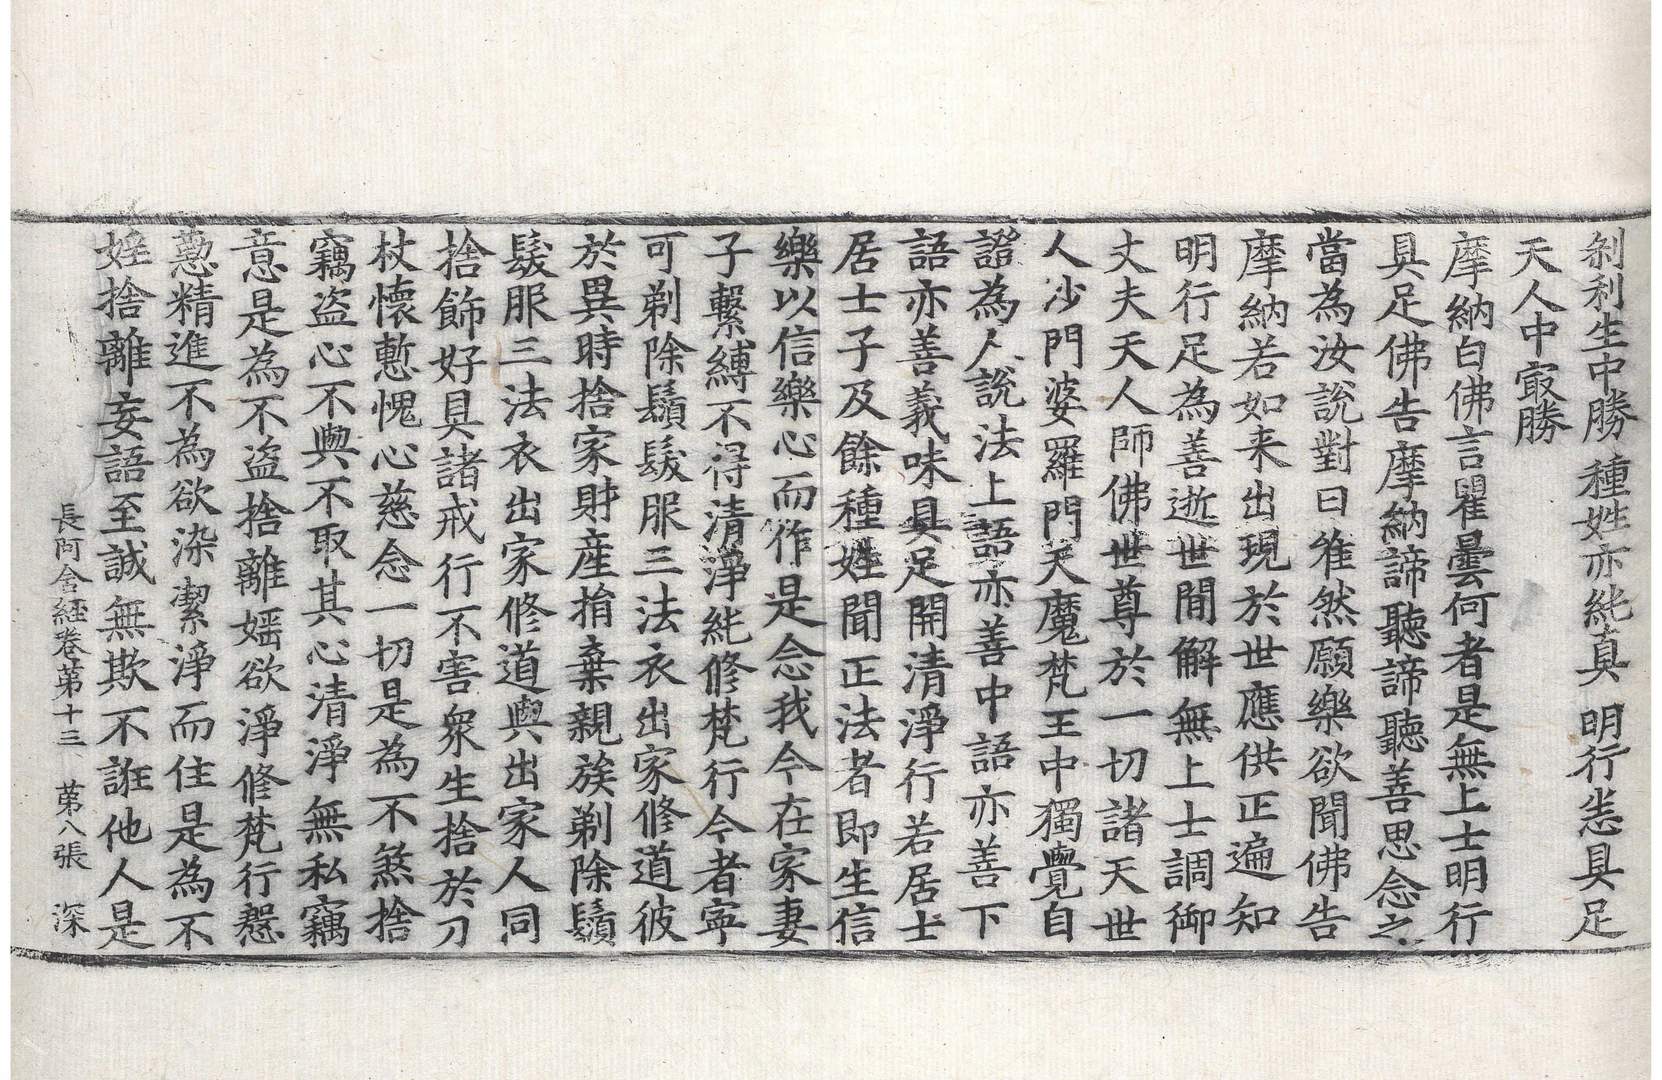 剎利生中勝 種姓亦純真 明行悉具足
天人中冣勝
摩納白佛言瞿曇何者是無上士明行
具足佛告摩納諦聽諦聽善思念之
當為汝說對曰唯然願樂欲聞佛告
摩納若如来出現於世應供正遍知
明行足為善逝世間解無上士調御
丈夫天人師佛世尊於一切諸天世
人沙門婆羅門天魔梵王中獨覺自
證為人說法上語亦善中語亦善下
語亦善義味具足開清淨行若居士
居士子及餘種姓聞正法者即生信
樂以信樂心而作是念我今在家妻
子繫縛不得清淨純修梵行今者寧
可剃除鬚髮服三法衣出家修道彼
於異時捨家財產捐棄親族剃除鬚
髮服三法衣出家修道與出家人同
捨飾好具諸戒行不害衆生捨於刀
杖懷慙愧心慈念一切是為不煞捨
竊盜心不與不取其心清淨無私竊
意是為不盜捨離婬欲淨修梵行慇
懃精進不為欲染潔淨而住是為不
婬捨離妄語至誠無欺不誑他人是
長阿含経卷第十三 第八張 深